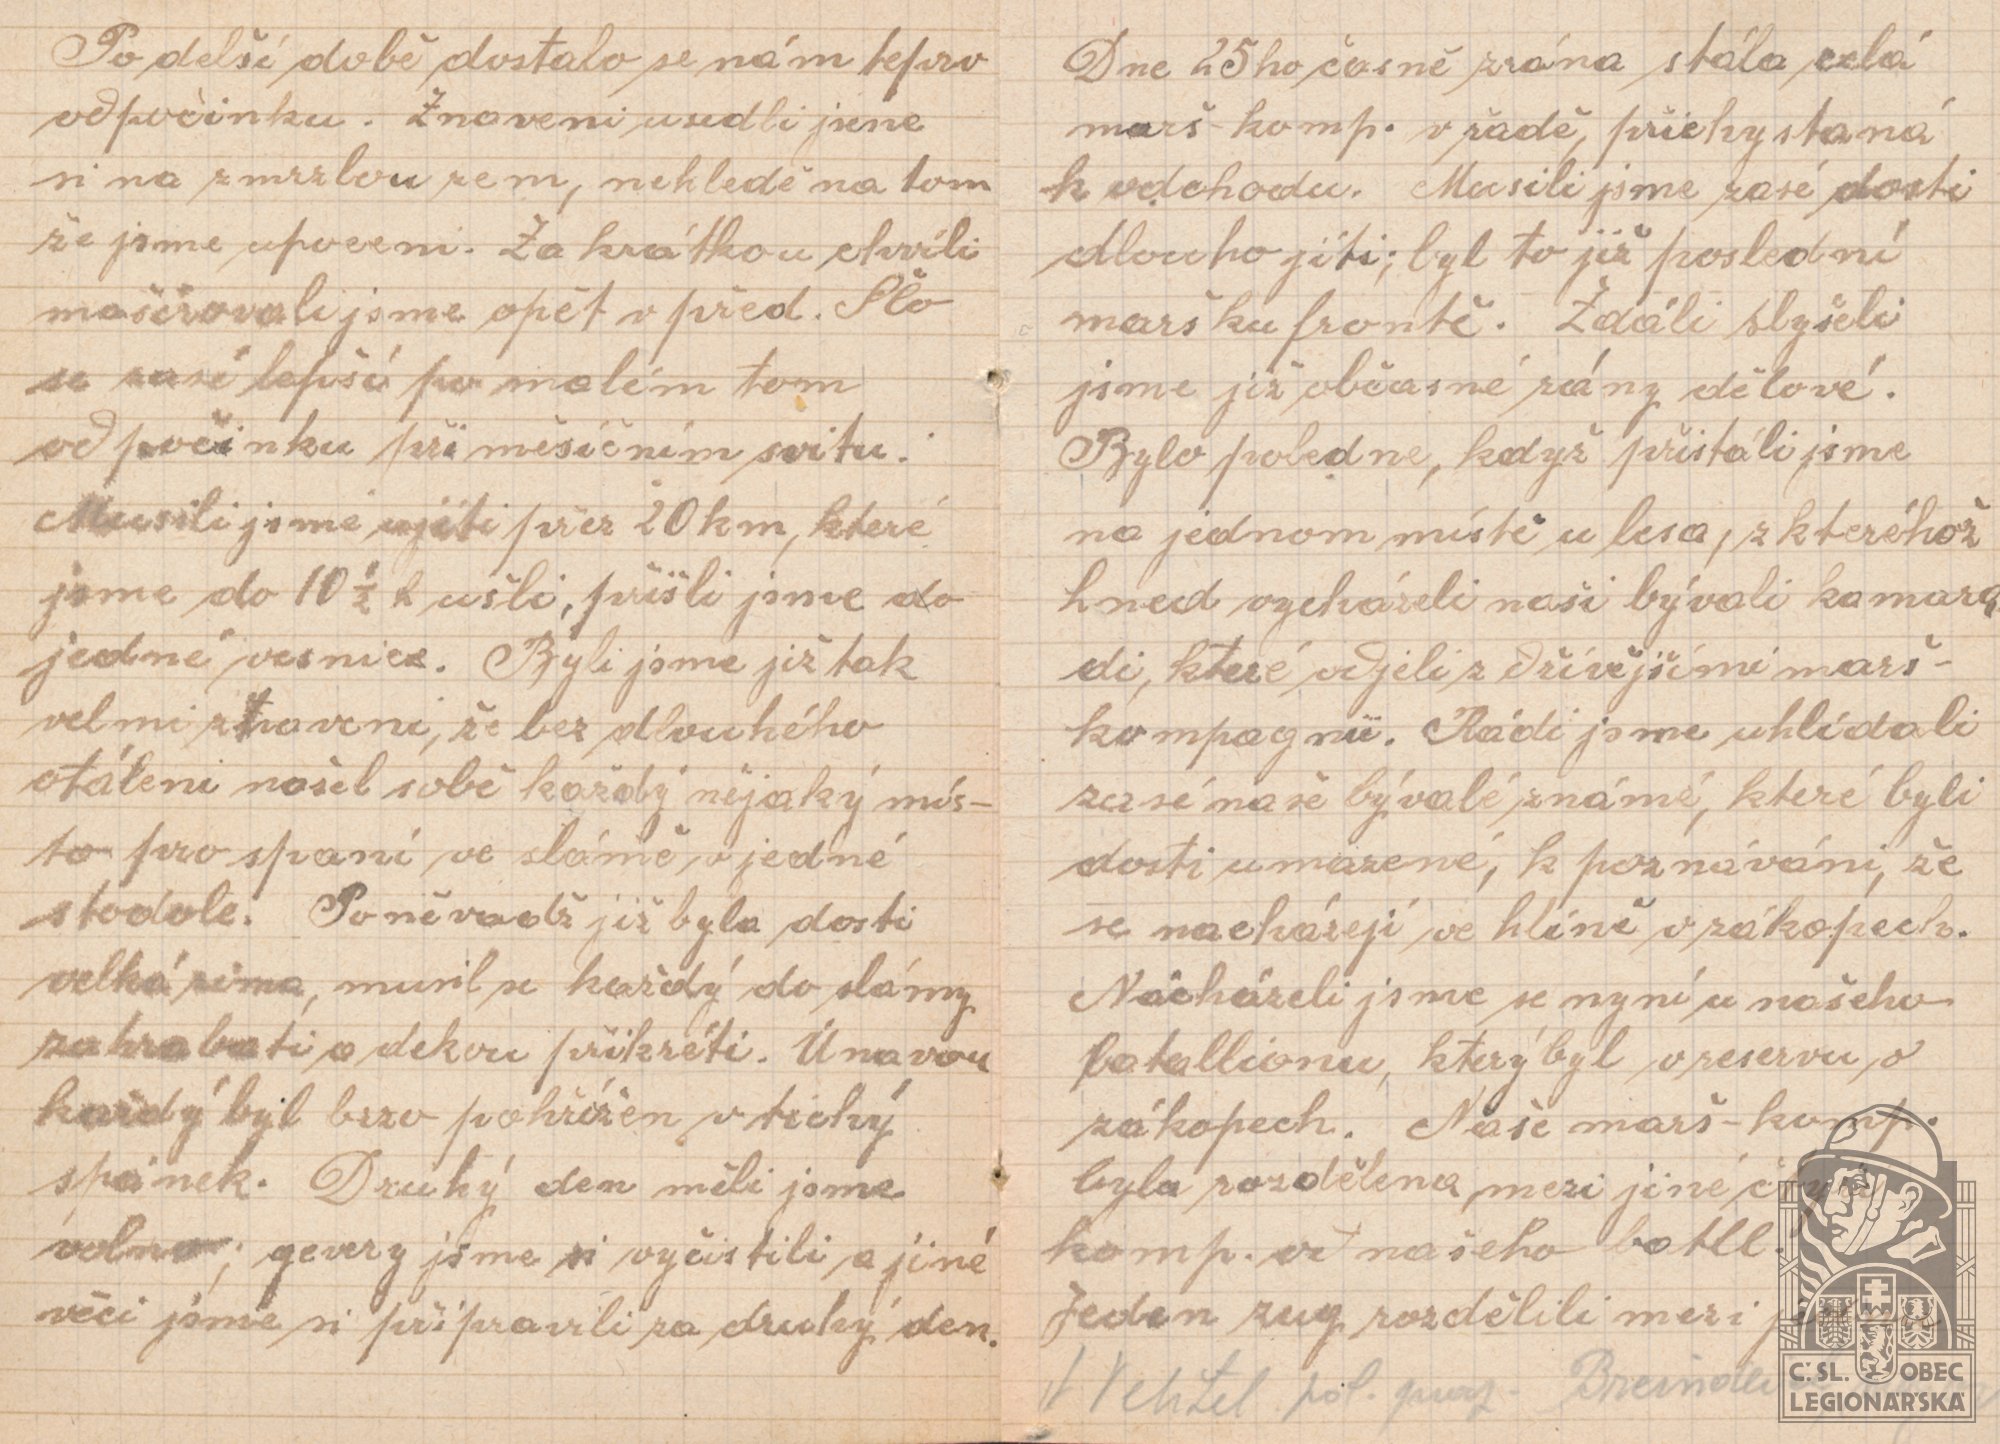 Po delší době dostalo se nám tepro
odpočinku. Znaveni usedli jsme
si na zmrzlou zem, nehledě na tom
že jsme upoceni. Za krátkou chvíli
mašírovali jsme opět v před. Šlo
se zasé lepší po malém tom
odpočinku při měsíčním svitu.
Musili jsme ujíti přez 20 km, které
jsme do 10 ½ h ušli, přišli jsme do
jedné vesnice. Byli jsme již tak
velmi znaveni, že bez dlouhého
otáleni našel sobě každý nějaký mís-
to pro spaní ve slámě v jedné
stodole. Poněvadž již byla dosti
velká zima, musil se každý do slámy
zahrabati a dekou přikréti. Únavou
každý byl brzo pohřížen v tichý
spánek. Druhý den měli jsme
volno; gevery jsme si vyčistili a jiné
věci jsme si připravili za druhý den.
Dne 25ho časně zrána stála celá
marš-komp. v řadě, přichystaná
k odchodu. Musili jsme zasé dosti
dlouho jíti; byl to již poslední
marš ku frontě. Zdáli slyšeli
jsme již občasné rány dělové.
Bylo poledne, když přistáli jsme
na jednom místě u lesa, z kteréhož
hned vycházeli naši bývali kamara
di, které odjeli z dřívějšími marš-
kompagnií. Rádi jsme uhlídali
zasé naše bývalé známé, které byli
dosti umazené, k poznáváni, že
se nacházejí ve hlíně v zákopech.
Nacházeli jsme se nyní u našeho
batallionu, který byl v reservu v
zákopech. Naše marš-komp.
byla rozdělena mezi jiné
komp. od našeho batll.
Jeden zug rozdělili mezi
Č.SL. OBEC
LEGIONÁŘSKÁ